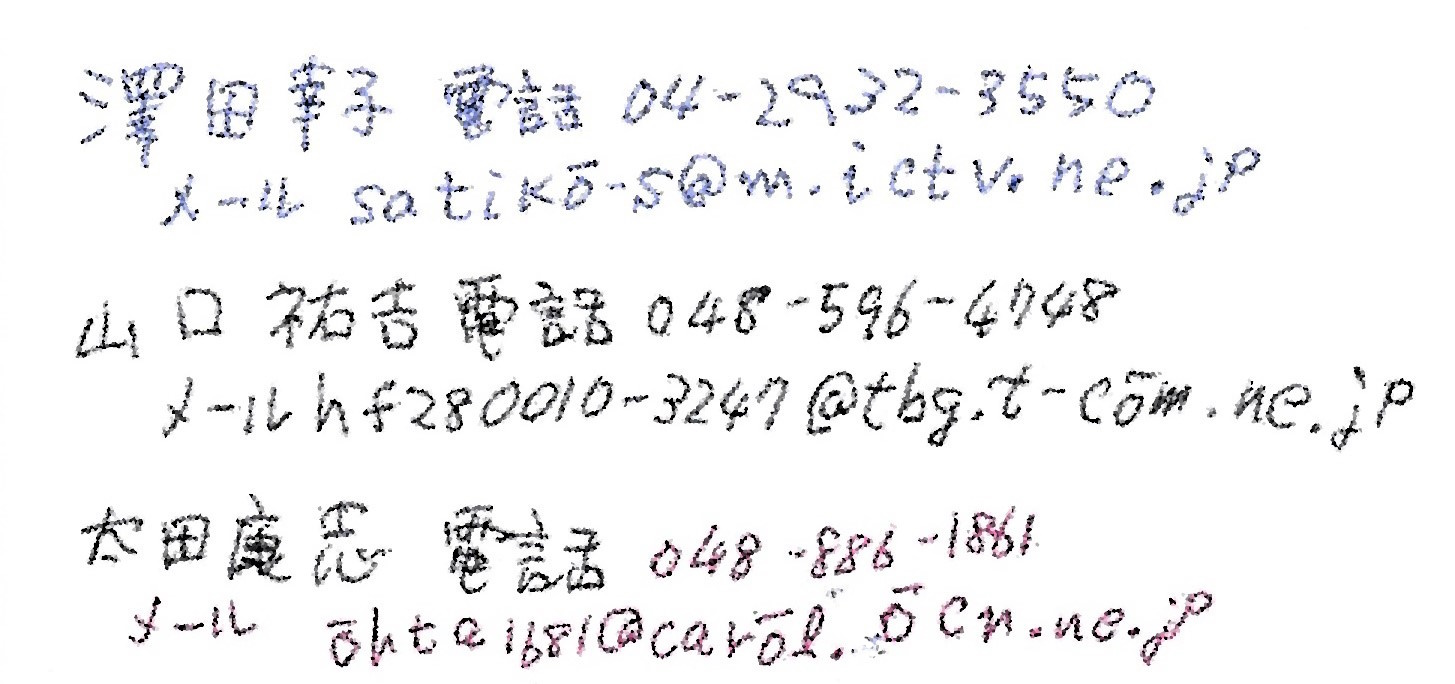 澤田幸子 電話 04-2932-3550
メール satikō-s@m.ictv.ne.jp
山口祐吉 電話 048-596-4748
メール hf280010-3247@tbg.t-cōm.ne.jp
太田庸志 電話 048-886-1861
メール ōhta1681@carōl.ōcn.ne.jp